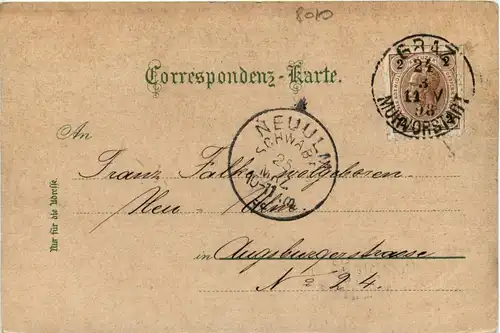 8010
Correspondenz-Karte.
GRAZ
24
3
11 V
98
MURVORSTADT
2
2
NEUULM
SCHWAB.
25
MRZ
An
Franz Falke Wolgeboren
Neu-Ulm
in Augsburgerstrasse
No 24.
Nur für die Adresse.